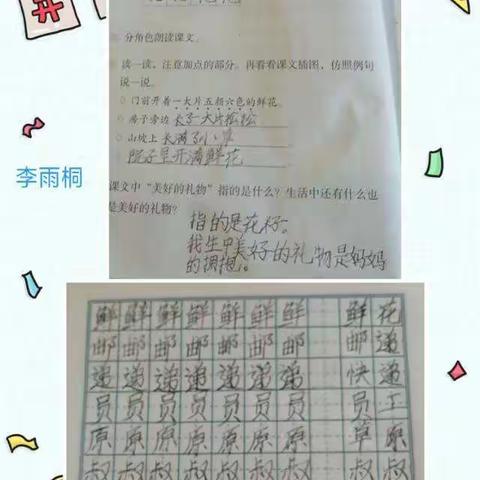 分角色朗读课文。
读一读，注意加点的部分。再看看课文插图，仿照例句
说一说。
○ 门前开着一大片五颜六色的鲜花。
○ 房子旁边长了一大片松松
○ 山坡上长满了小草
院子里开满鲜花
课文中“美好的礼物”指的是什么？生活中还有什么也
是美好的礼物？
指的是花籽。
我生中美好的礼物是妈妈
的拥抱。
李雨桐
鲜鲜鲜鲜鲜鲜鲜 鲜花
邮邮邮邮邮邮邮 邮递
递递递递递递递 快递
员员员员员员员 员工
原原原原原原原 草原
叔叔叔叔叔叔叔 叔叔